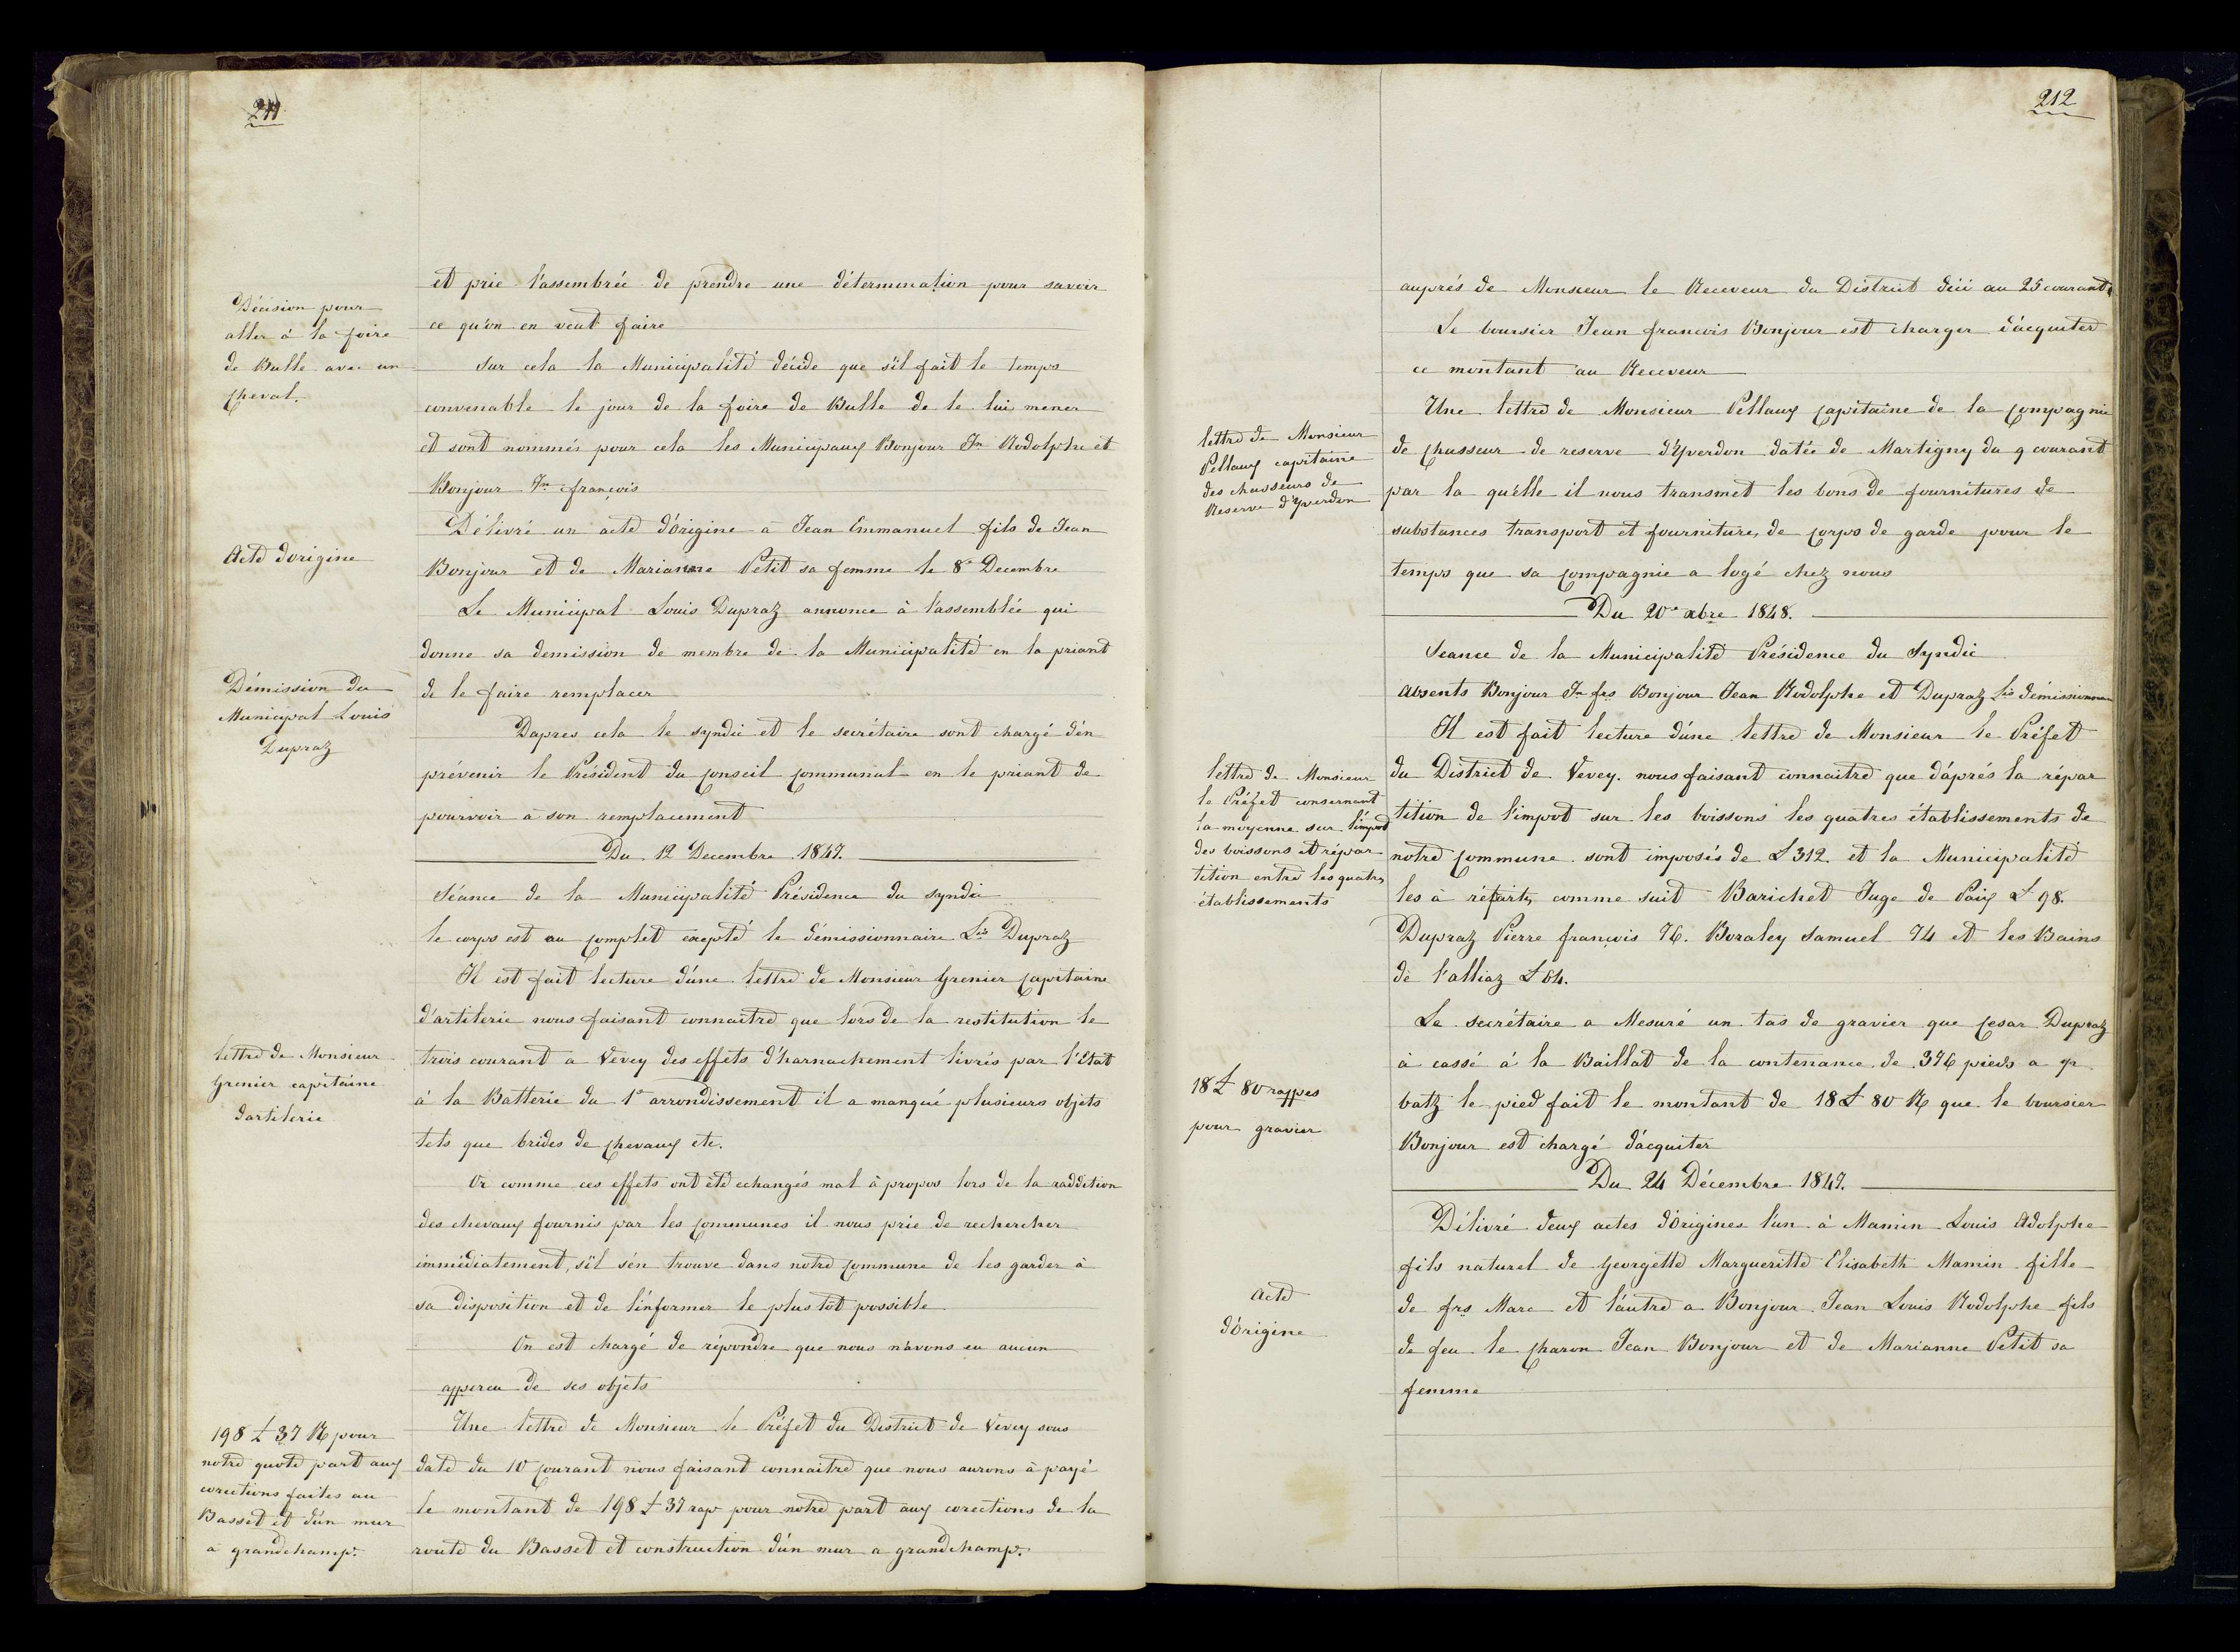 211
Décision pour
aller à la foire
de Bulle avec un
cheval.
et prie l'assembrée de prendre une détermination pour savoir
ce qu'on en veut faire
Sur cela la Municipalité décide que s'il fait le temps
convenable le jour de la foire de Bulle de le lui mener
et sont nommés pour cela les Municipaux Bonjour Jn Rodolphe et
Bonjour Jn françois
Acte dorigine
Délivré un acte d'Origine a Jean Emmanuel fils de Jean
Bonjour et de Marianne Petit sa femme le 8e Decembre
Démission du
Municipal Louis
Dupraz
Le Municipal Louis Dupraz annonce à l'assemblée qui
donne sa demission de membre de la Municipalité en la priant
de le faire remplacer
Dapres cela le syndic et le secrétaire sont chargé d'en
prévenir le Président du conseil communal en le priant de
pourvoir à son remplacement
Du 12 Decembre 1847.
Séance de la Municipalité Présidence du syndic
le corps est au complet excepté le démissionnaire Ls Dupraz
lettre de Monsieur
Grenier capitaine
dartilerie
Il est fait lecture d'une lettre de Monsieur Grenier capitaine
d'artilerie nous faisant connaître que lors de la restitution le
trois courant a Vevey des effets d'harnachement livrés par l'Etat
à la Batterie du 1e arrondissement il a manqué plusieurs objets
tels que brides de chevaux etc.
Or comme ces effets ont été echangés mal à propos lors de la raddition
des chevaux fournis par les communes il nous prie de rechercher
immédiatement, s'il s'en trouve dans notre commune de les garder à
sa disposition et de l'informer le plus tôt possible
On est chargé de répondre que nous n'avons eu aucun
appercu de ses objets
198 £ 37 R pour
notre quote part aux
corections faites au
Basset et d'un mur
a grandchamp.
Une lettre de Monsieur le Préfet du District de Vevey sous
date du 10 courant nous faisant connaitre que nous aurons à payé
le montant de 198 £ 37 rap pour notre part aux corections de la
route du Basset et construction d'un mur a grandchamp.
212
auprés de Monsieur le Receveur du District d'ici au 25 courant
Le boursier Jean francois Bonjour est charger d'acquiter
ce montant au Receveur
lettre de Monsieur
Pellaux capitaine
des chasseurs de
Reserve d'Yverdon
Une lettre de Monsieur Pellaux capitaine de la compagnie
de chasseur de reserve d'Yverdon datée de Martigny du 9 courant
par la qu'elle il nous transmet les bons de fournitures de
substances transport et fourniture, de corps de garde pour le
temps que sa compagnie a logé chez nous
Du 20e xbre 1848.
Seance de la Municipalité Présidence du Syndic
absents Bonjour Jn frs Bonjour Jean Rodolphe et Dupraz Ls démissionnaire
lettre de Monsieur
le Préfet consernant
la moyenne sur l'impot
des boissons et répar
tition entre les quatre
établissements
Il est fait lecture d'une lettre de Monsieur le Préfet
du District de Vevey. nous faisant connaitre que d'aprés la répar
tition de l'impot sur les boissons les quatres établissements de
notre commune sont imposés de £ 312. et la Municipalité
les à réparti comme suit Barichet Juge de Paix £ 98.
Dupraz Pierre françois 76. Boraley Samuel 74 et les Bains
de l'alliaz £ 64.
18 £ 80 rappes
pour gravier
Le secrétaire a Mesuré un tas de gravier que cesar Dupraz
à cassé à la Baillat de la contenance de 376 pieds a
batz le pied fait le montant de 18 £ 80 R que le boursier
Bonjour est chargé d'acquiter
Du 24 Décembre 1847.
Acte
d'Origine
Délivré deux actes d'Origines l'un à Mamin Louis Adolphe
fils naturel de Georgette Margueritte Elisabeth Mamin fille
de frs Marc et l'autre a Bonjour Jean Louis Rodolphe fils
de feu le charon Jean Bonjour et de Marianne Petit sa
femme